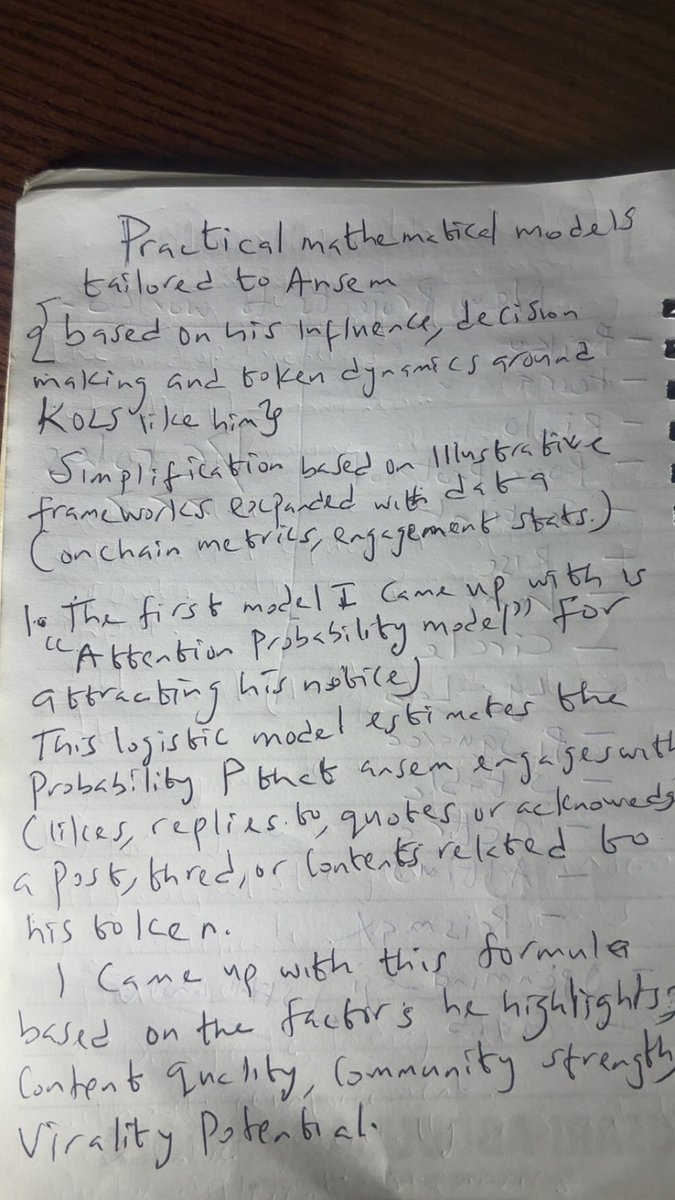 Practical mathematical models
tailored to Ansem
{based on his influence, decision
making and token dynamics around
KOLS like him}
Simplification based on Illustrative
frameworks expanded with data
(onchain metrics, engagement stats.)
1. The first model I came up with is
"Attention Probability model" for
attracting his notice)
This logistic model estimates the
Probability P that ansem engages with
(likes, replies to, quotes or acknowedg
a post, thred, or Contents related to
his token.
I Came up with this formula
based on the factor's he highlights;
Content quality, Community strength,
Virality Potential.